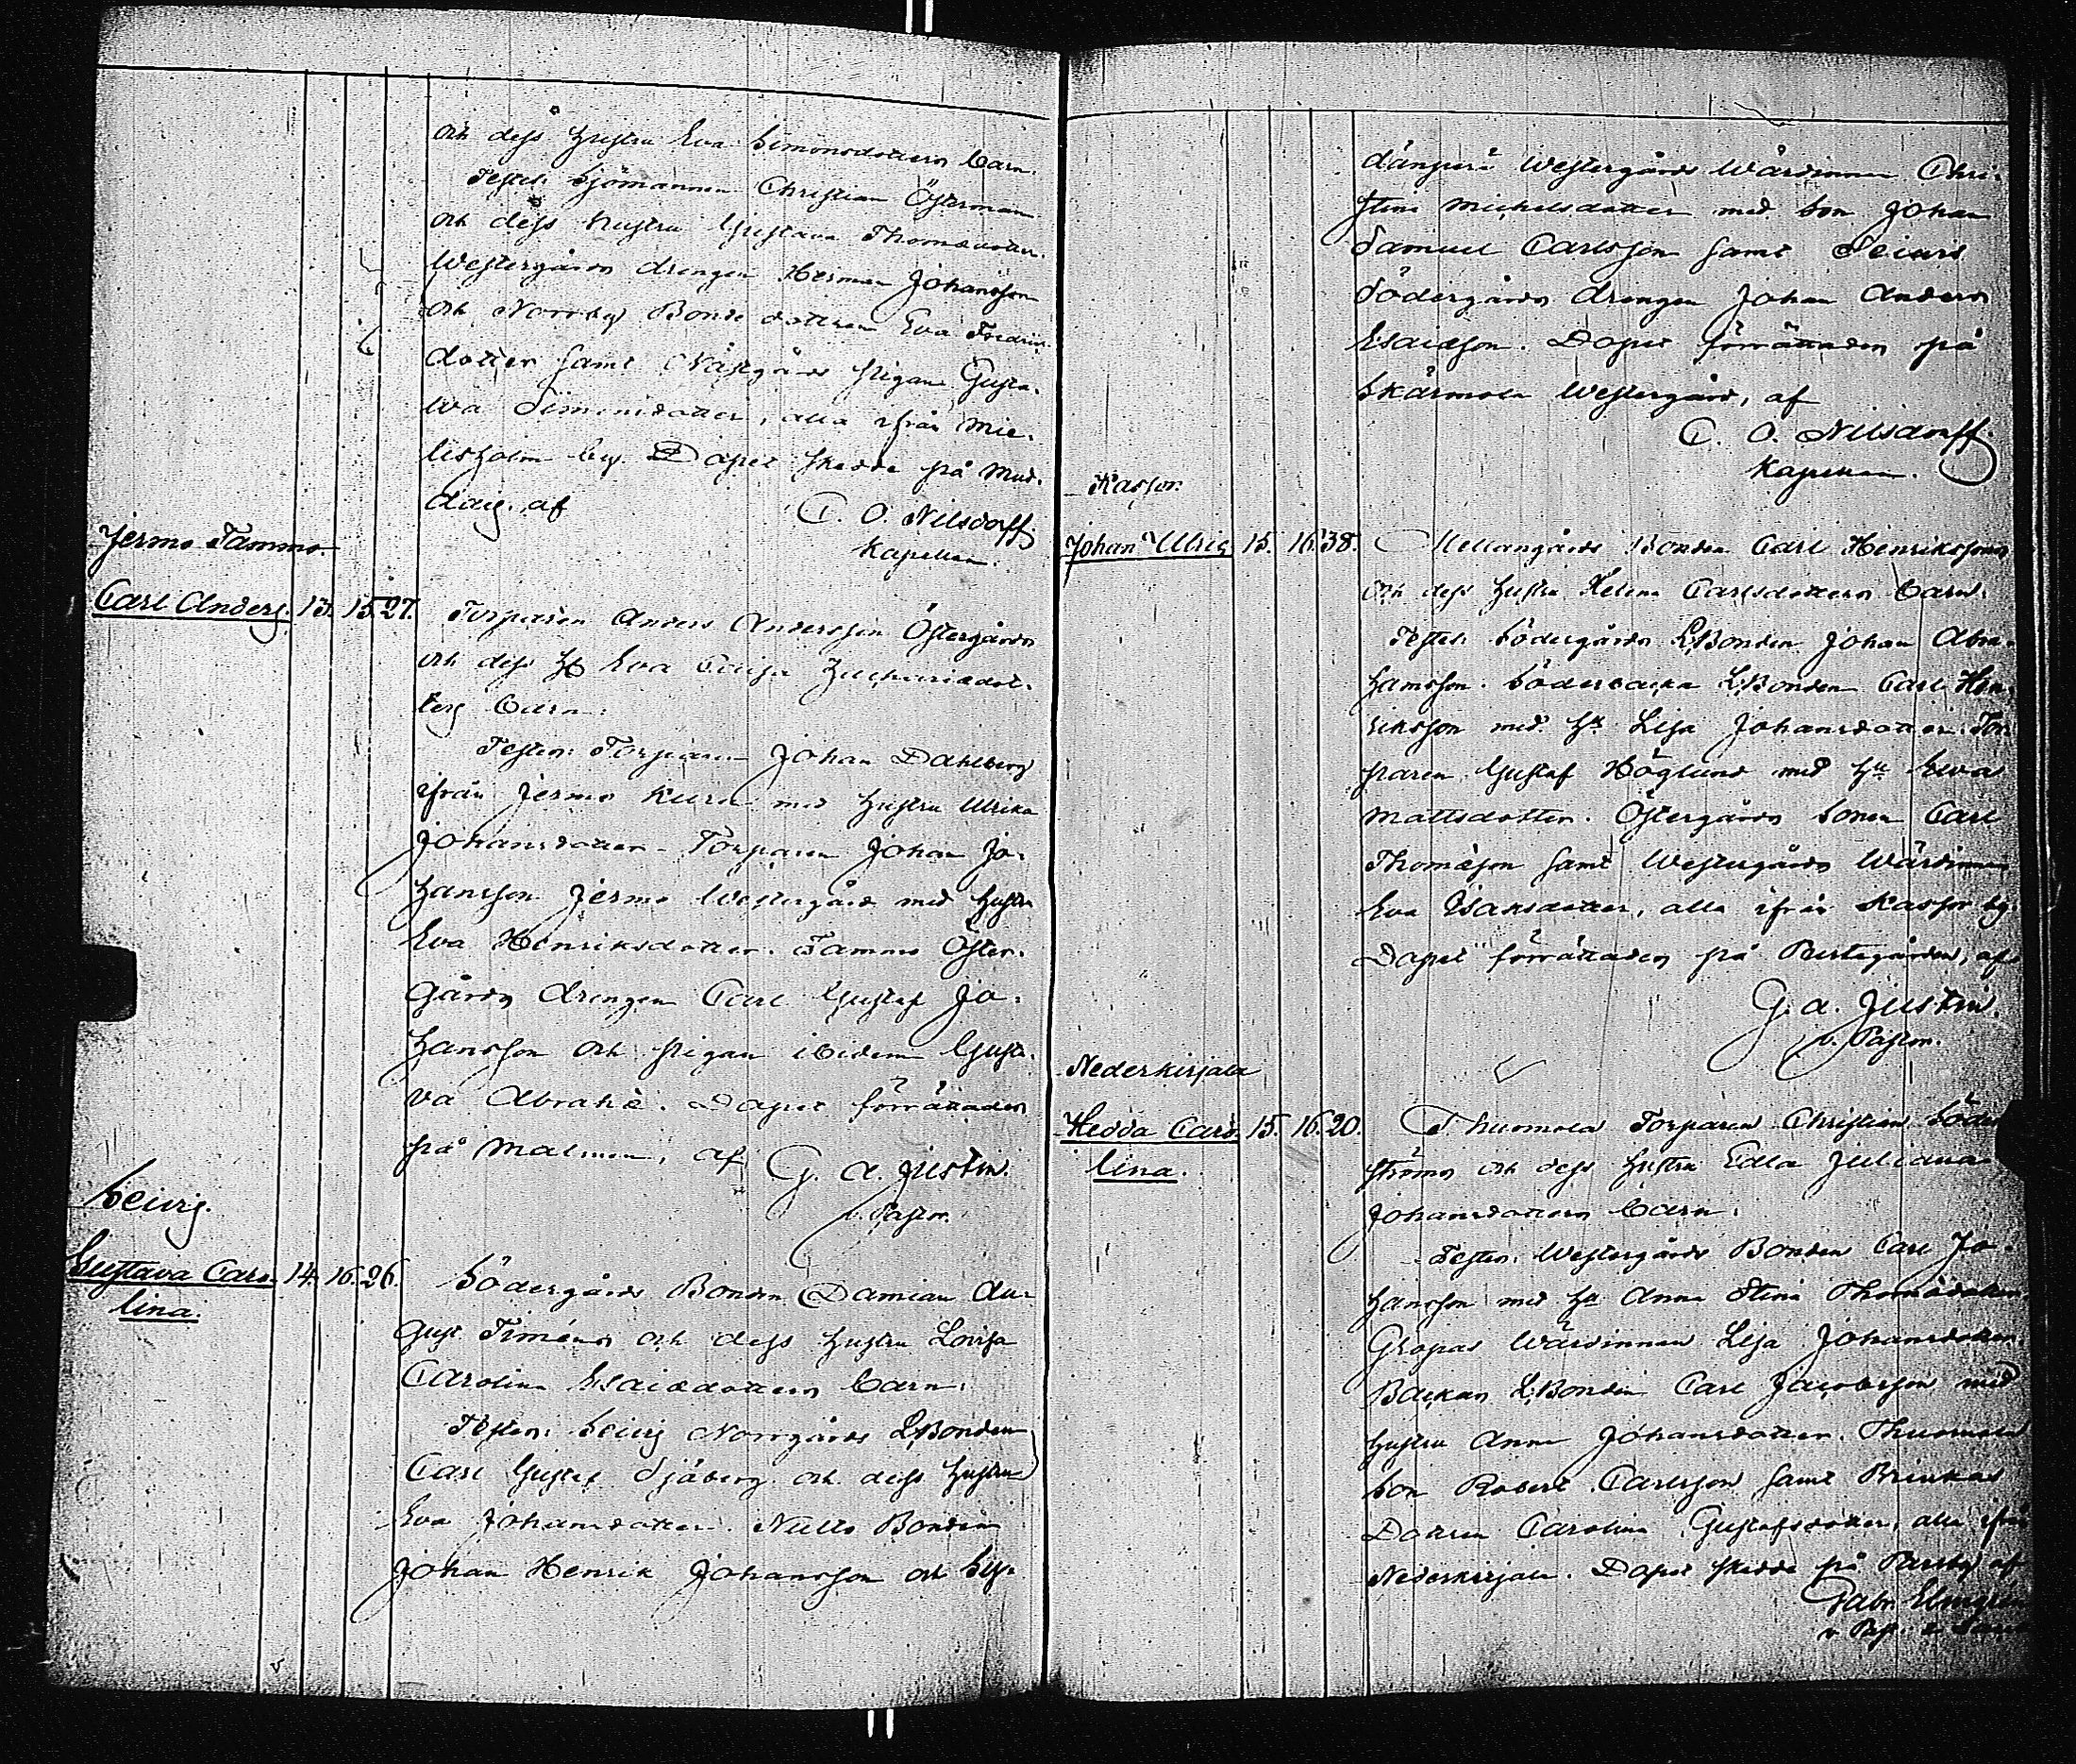 och dess hustru Eva Simonsdotters barn.
Testes: Sjömannen Christian Österman
och dess hustru Gustava Thomædotter.
Westergårds drengen Herman Johansson
och Norrby Bonde dottren Eva Fredrics
dotter samt Nästgårds pigan Gusta-
va Simonsdotter, alla ifrån Mie-
lisholm by. Dopet skedde på Mud-
daig. af C. O. Nilsdorff.
Kapellan.
Jermo Tammo
Carl Anders. 13. 15. 27. Torparen Anders Andersson Östergårds
och dess H. Eva Caisa Zachariædot-
ters barn.
Testes: Torparen Johan Dahlberg
ifrån Jermo Kura med hustru Ulrika
Johansdotter. Torparen Johan Jo-
hansson Jermo Westergård med hustru
Eva Henriksdotter. Tammo Öster-
gårds drengen Carl Gustaf Jo-
hansson och pigan ibidem Gusta-
va Abrahs. Dopet förrättades
på Malmen, af G. A. Justin.
v. Pastor.
Seivis.
Gustava Caro- 14. 16. 26. Södergårds Bonden Damian Au-
lina.
gust Siméns och dess hustru Lovisa
Carolina Esaiædotters barn.
Testes: Seivis Norrgårds L.Bonden
Carl Gustaf Sjöberg och dess hustru
Eva Johansdotter. Nullo Bonden
Johan Henrik Johansson och Sys-
Westergårds Wärdinnan Chri-
stina Michelsdotter med Son Johan
Samuel Carlsson samt Seivis
Södergårds drengen Johan Anders
Esaiæson. Dopet förrättades på
Skärmola Westergård, af
C. O. Nilsdorff.
Kapellan.
Kassor.
Johan Ulric 15. 16. 38. Mellangårds Bonden Carl Henrikssons
och dess hustru Helena Carlsdotters barn.
Testes: Södergårds L.Bonden Johan Abra-
hamsson. Söderbacka L.Bonden Carl Hen-
riksson med H. Lisa Johansdotter. Tor-
paren Gustaf Höglund med Hu Eva
Mattsdotter. Östergårds Sonen Carl
Thomæson samt Westergårds Wärdinnan
Eva Isaksdotter, alla ifrån Kassor by.
Dopet förrättades på Prestegården, af
G. A. Justin.
v. Pastor.
Nederkirjala
Hedda Caro- 15. 16. 20. Thuomola Torparen Christian Söder-
lina.
ströms och dess hustru Edla Juliana
Johansdotters barn.
Testes: Westergårds Bonden Carl Jo-
hansson med Hu Anna Stina Thomædotter
Gropas Wärdinnan Lisa Johansdotter.
Backas L.Bonden Carl Jacobsson med
hustru Anna Johansdotter. Thuomola
Son Robert Carlsson samt Brinkas
Dottren Carolina Gustafsdotter, alla ifrån
Nederkirjala. Dopet skedde på Parsby af
Gabr. Elmgrén
v. Past.